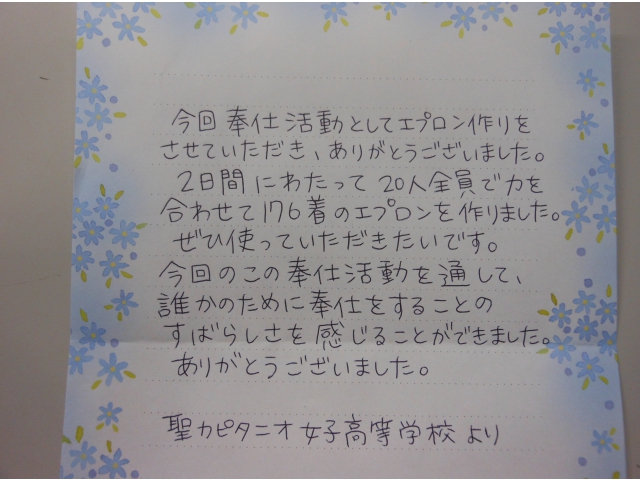 今回奉仕活動としてエプロン作りを
させていただき、ありがとうございました。
2日間にわたって20人全員で力を
合わせて176着のエプロンを作りました。
ぜひ使っていただきたいです。
今回のこの奉仕活動を通して、
誰かのために奉仕をすることの
すばらしさを感じることができました。
ありがとうございました。
聖カピタニオ女子高等学校より